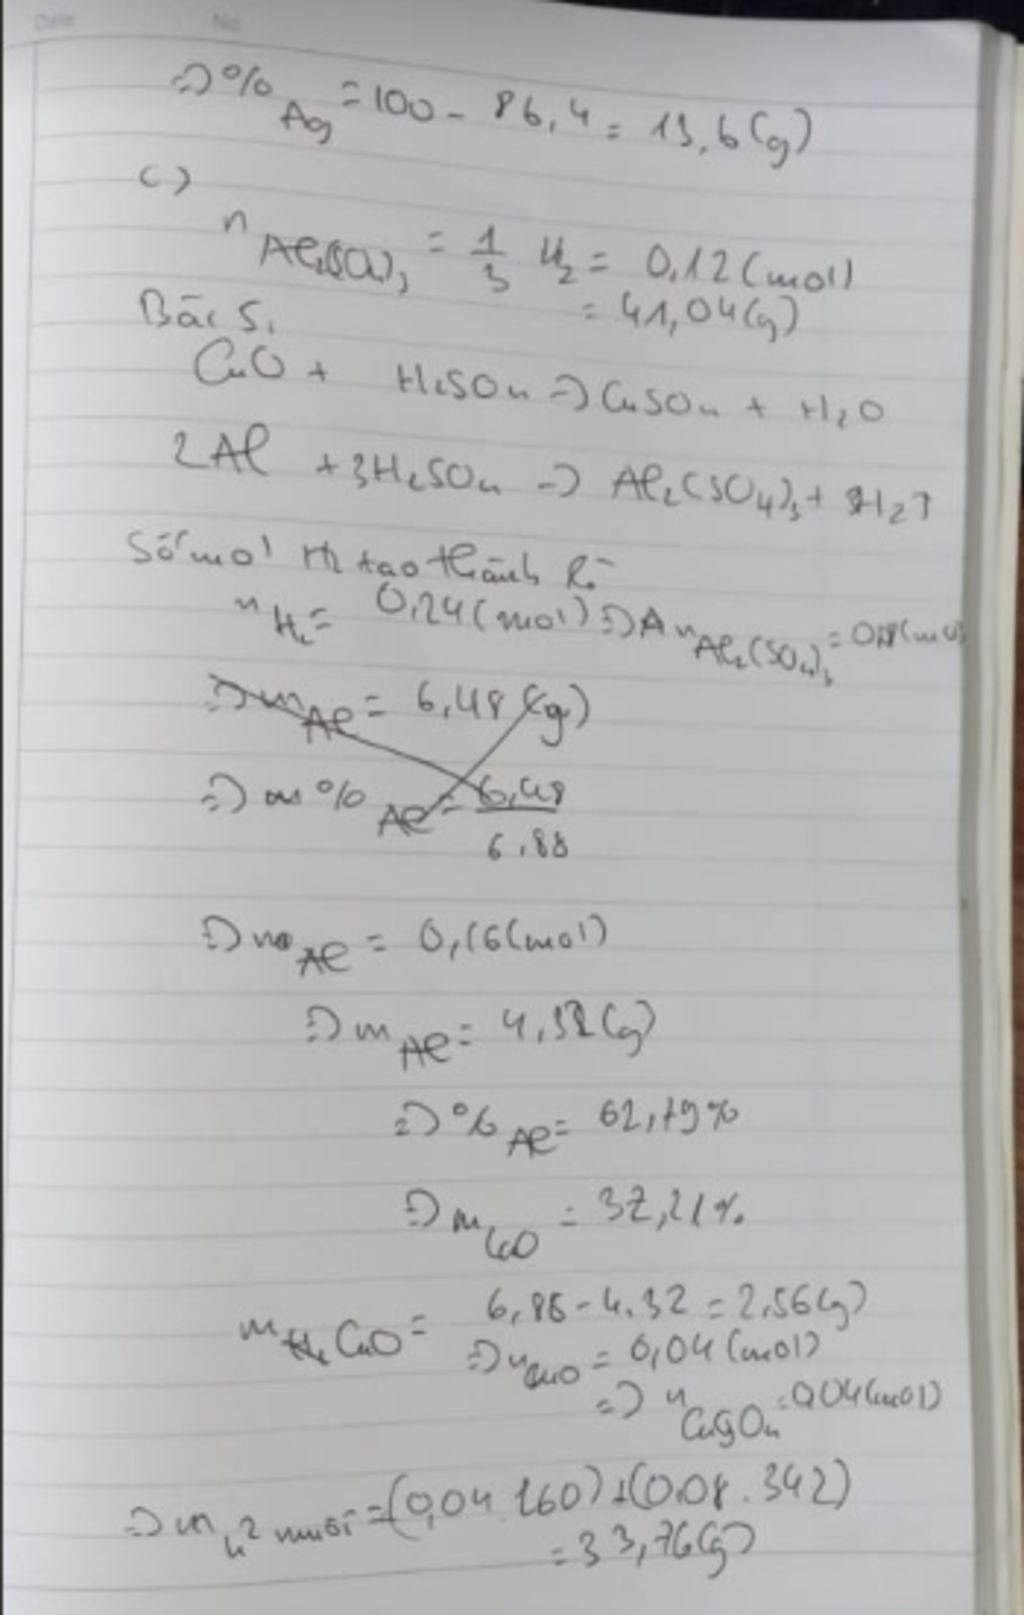 Date No
=> % Ag = 100 - 86,4 = 13,6 (g)
c)
n Al2(SO4)3 = 1/3 H2 = 0,12 (mol)
= 41,04 (g)
Bài 5,
CuO + H2SO4 => CuSO4 + H2O
2Al + 3H2SO4 => Al2(SO4)3 + 3H2↑
Số mol H2 tạo thành là
n H2 = 0,24 (mol) => n Al2(SO4)3 = 0,08 (mol)
=> m Al = 6,48 (g)
=> % Al = 6,48
6,88
=> n Al = 0,16 (mol)
=> m Al = 4,32 (g)
=> % Al = 62,79%
=> m CuO = 37,21%
m CuO = 6,88 - 4,32 = 2,56 (g)
=> n CuO = 0,04 (mol)
=> n CuSO4 = 0,04 (mol)
=> m 2 muối = (0,04.160) + (0,08.342)
= 33,76 (g)